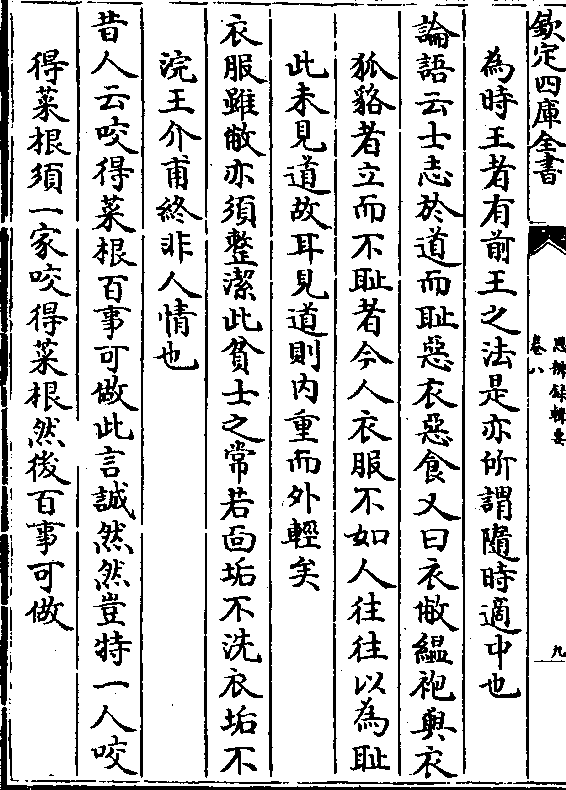 欽定四庫全書
思辨録輯要
卷八
九
為時王者有前王之法是亦所謂隨時適中也
論語云士志於道而恥惡衣惡食又曰衣敝緼袍與衣
狐貉者立而不恥者今人衣服不如人往往以為恥
此未見道故耳見道則内重而外輕矣
衣服雖敝亦須整潔此貧士之常若面垢不洗衣垢不
浣王介甫終非人情也
昔人云咬得菜根百事可做此言誠然然豈特一人咬
得菜根須一家咬得菜根然後百事可做